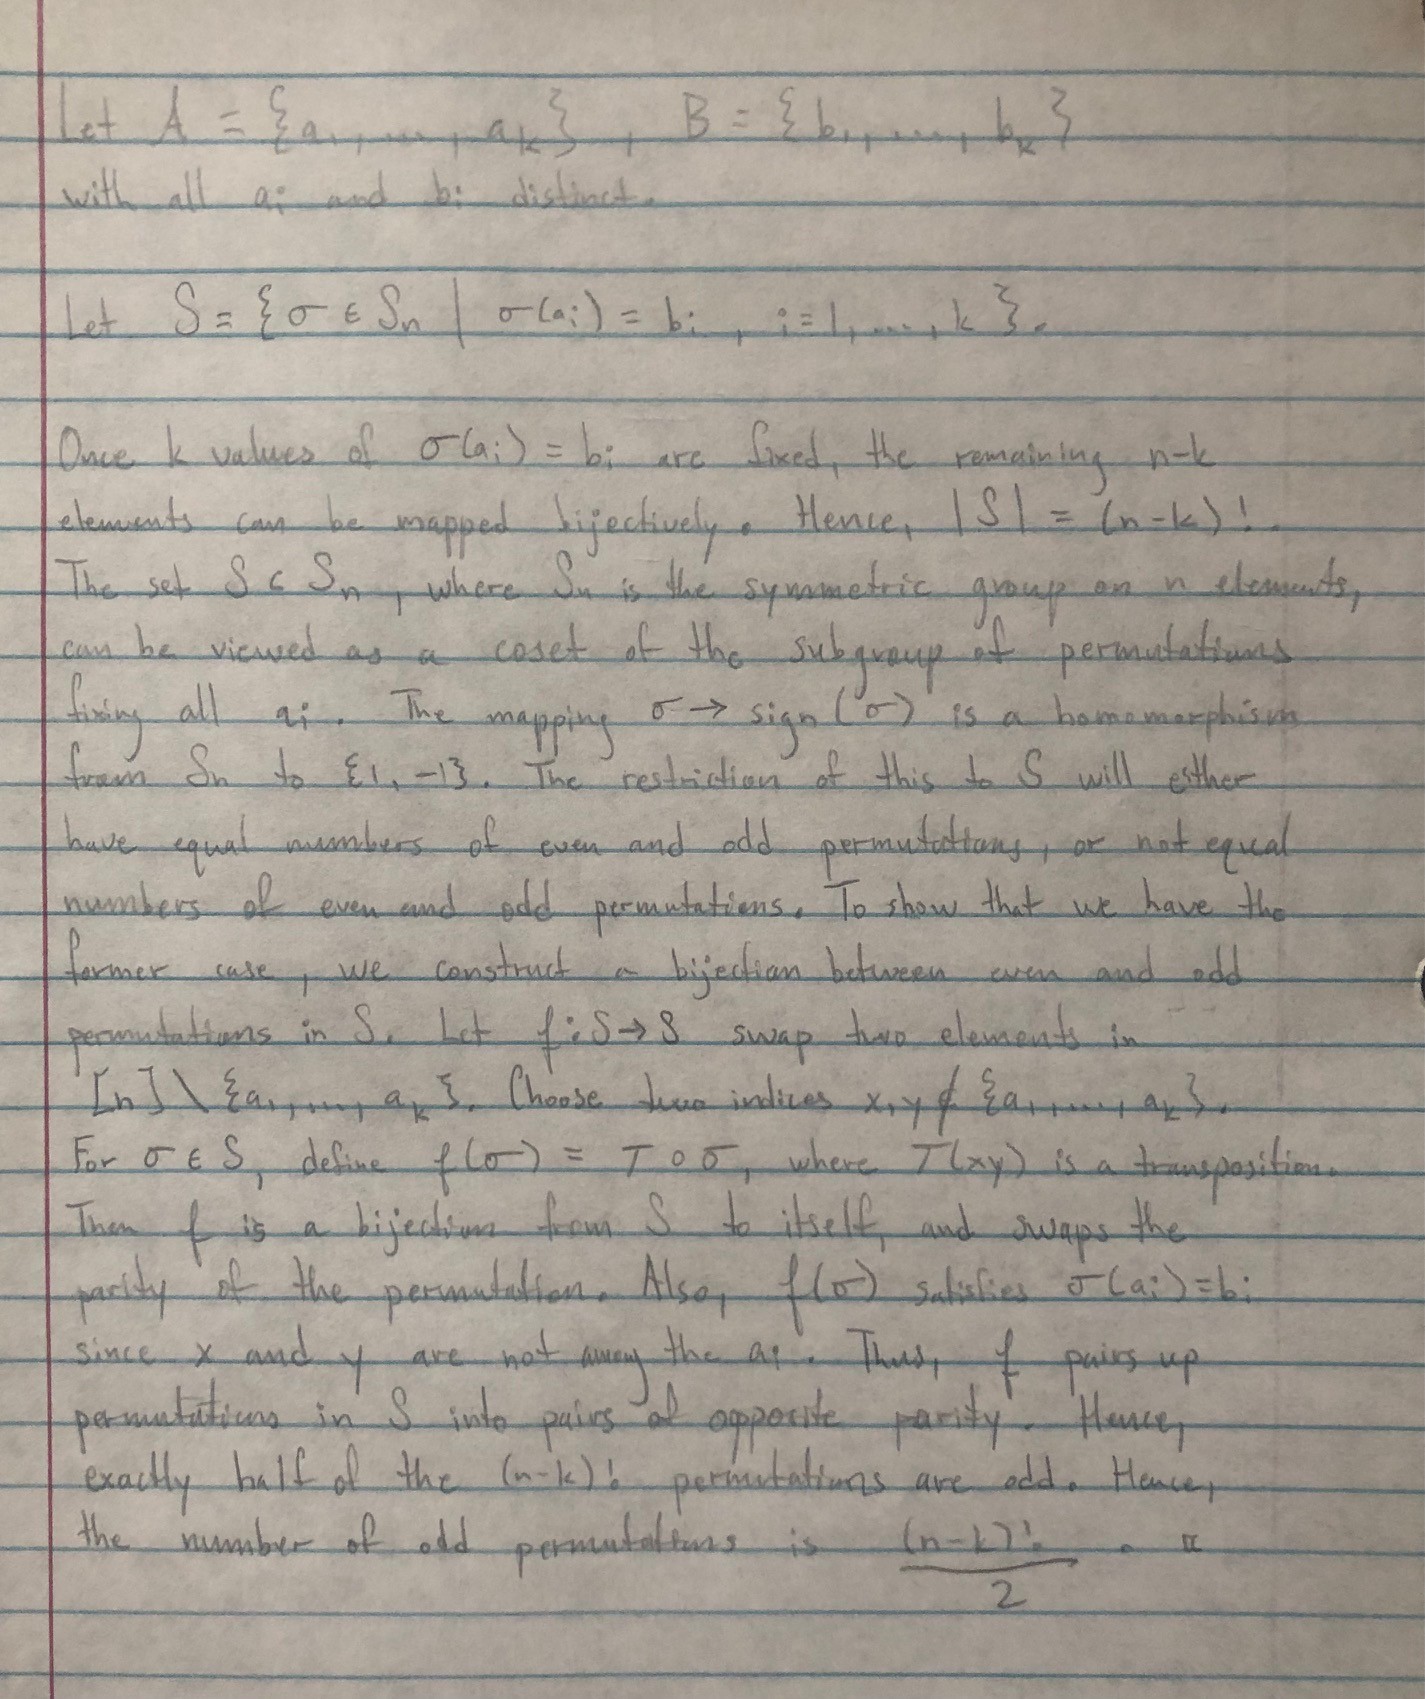 Let A = {a₁, ..., aₖ}, B = {b₁, ..., bₖ}
with all aᵢ and bᵢ distinct.
Let S = {σ ∈ Sₙ | σ(aᵢ) = bᵢ, i=1, ..., k}.
Once k values of σ(aᵢ) = bᵢ are fixed, the remaining n-k
elements can be mapped bijectively. Hence, |S| = (n-k)!.
The set S ⊂ Sₙ, where Sₙ is the symmetric group on n elements,
can be viewed as a coset of the subgroup of permutations
fixing all aᵢ. The mapping σ → sign(σ) is a homomorphism
from Sₙ to {1, -1}. The restriction of this to S will either
have equal numbers of even and odd permutations, or not equal
numbers of even and odd permutations. To show that we have the
former case, we construct a bijection between even and odd
permutations in S. Let f: S → S swap two elements in
[n] \ {a₁, ..., aₖ}. Choose two indices x, y ∉ {a₁, ..., aₖ}.
For σ ∈ S, define f(σ) = T ∘ σ, where T(xy) is a transposition.
Then f is a bijection from S to itself, and swaps the
parity of the permutation. Also, f(σ) satisfies σ(aᵢ)=bᵢ
since x and y are not among the aᵢ. Thus, f pairs up
permutations in S into pairs of opposite parity. Hence,
exactly half of the (n-k)! permutations are odd. Hence,
the number of odd permutations is (n-k)!/2. ¤